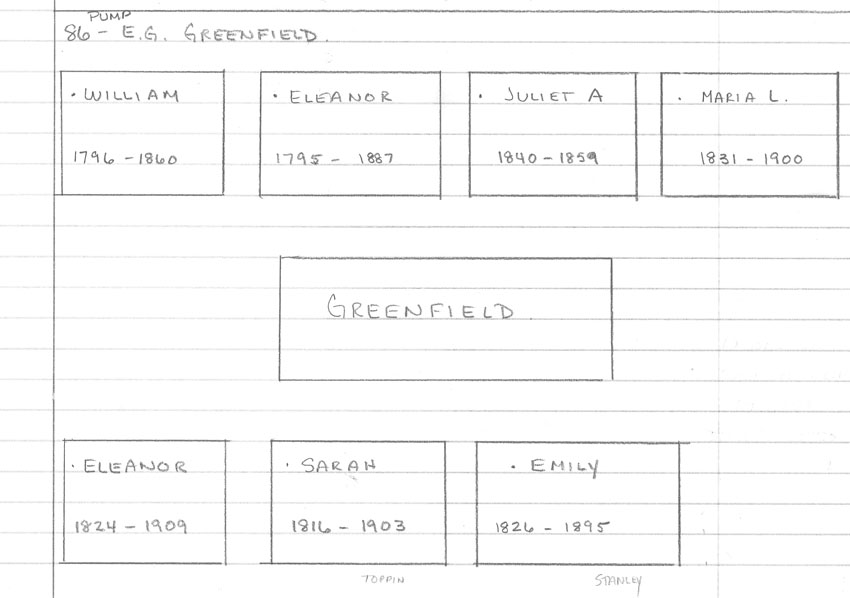 PUMP
86 - E.G. GREENFIELD.
· WILLIAM · ELEANOR · JULIET A · MARIA L.
1796 - 1860 1795 - 1887 1840 - 1859 1831 - 1900
GREENFIELD.
· ELEANOR · SARAH · EMILY
1824 - 1909 1816 - 1903 1826 - 1895
TOPPIN STANLEY